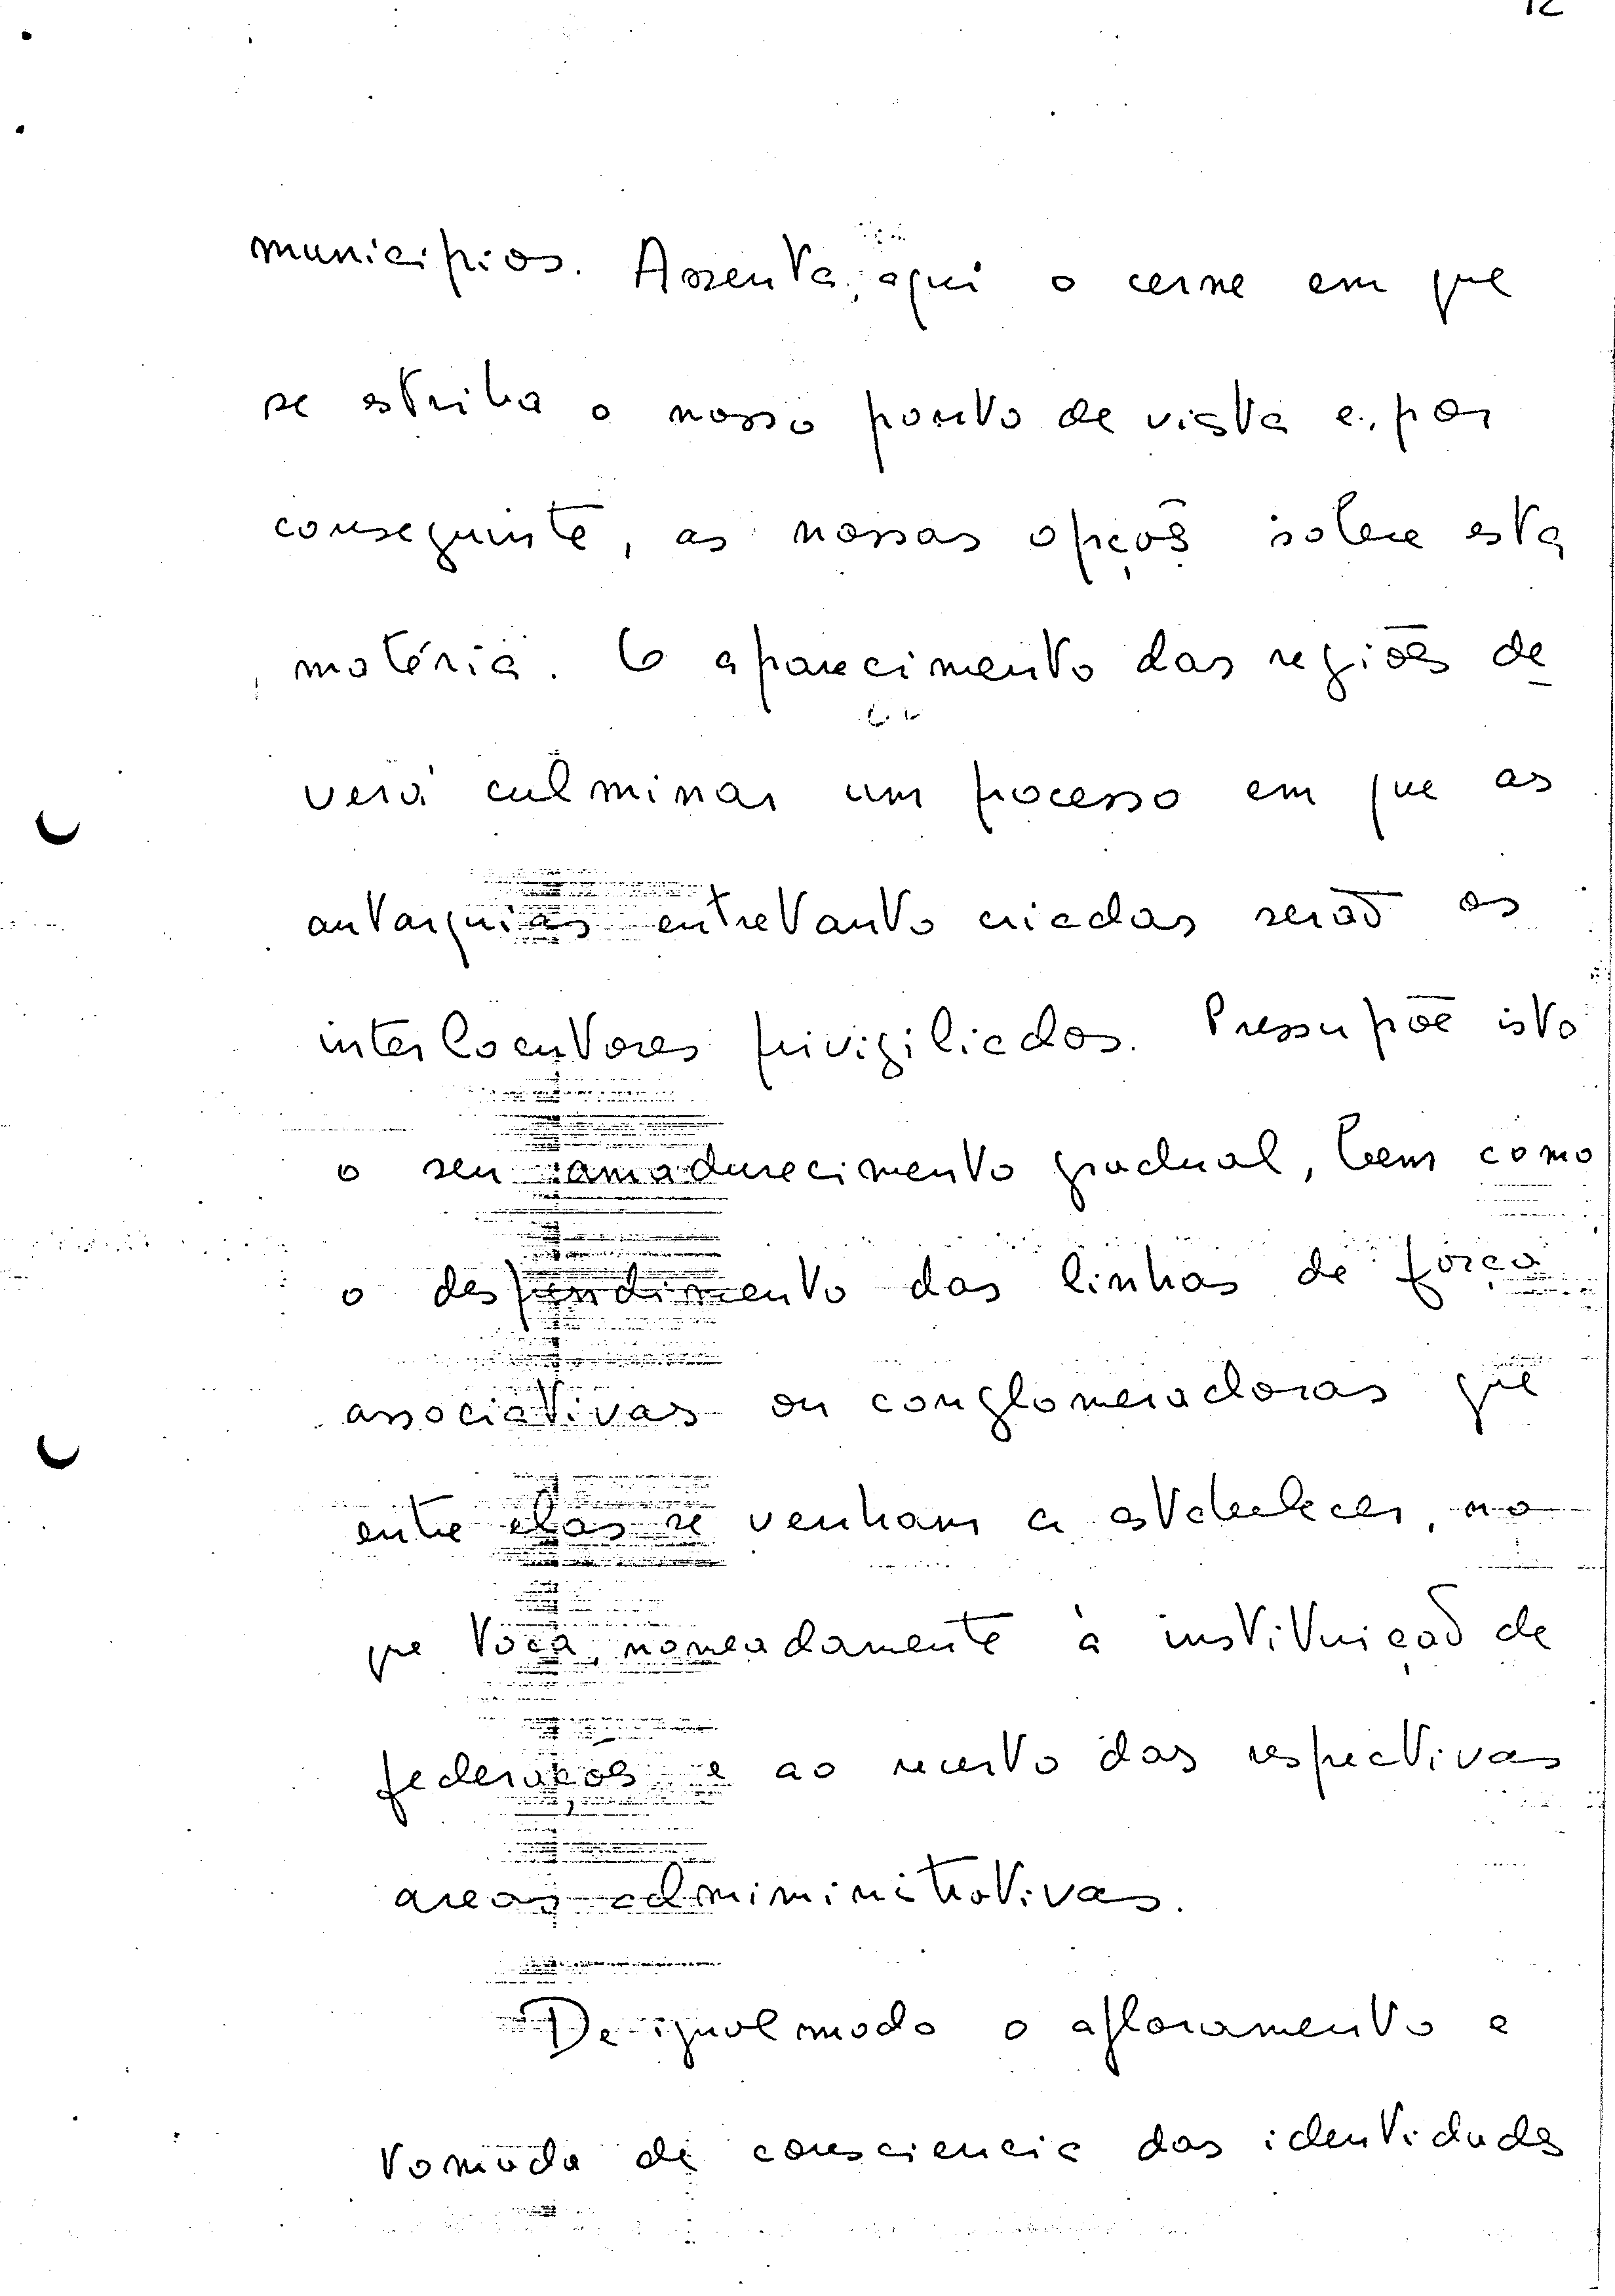 12
municípios. Assenta, aqui o cerne em que
se estriba o nosso ponto de vista e, por
conseguinte, as nossas opções sobre esta
matéria. O aparecimento das regiões de
verá culminar um processo em que as
autarquias entretanto criadas serão os
interlocutores privigiliados. Pressupõe isto
o seu amadurecimento gradual, bem como
o despendimento das linhas de força
associativas ou conglomeradoras que
entre elas se venham a estabelecer, no
que toca, nomeadamente à instituição de
federações e ao recorte das respectivas
areas adminimitrativas.
De igual modo o afloramento e
tomada de consciencia das identidades